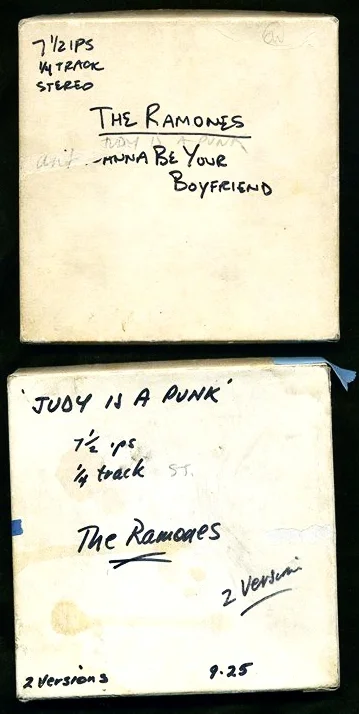 7 1/2 IPS
1/4 TRACK
STEREO
THE RAMONES
JUDY IS A PUNK
-ANNA BE YOUR
BOYFRIEND
'JUDY IS A PUNK'
7 1/2 ips
1/4 track ST.
The Ramones
2 Version
2 Versions 9.25